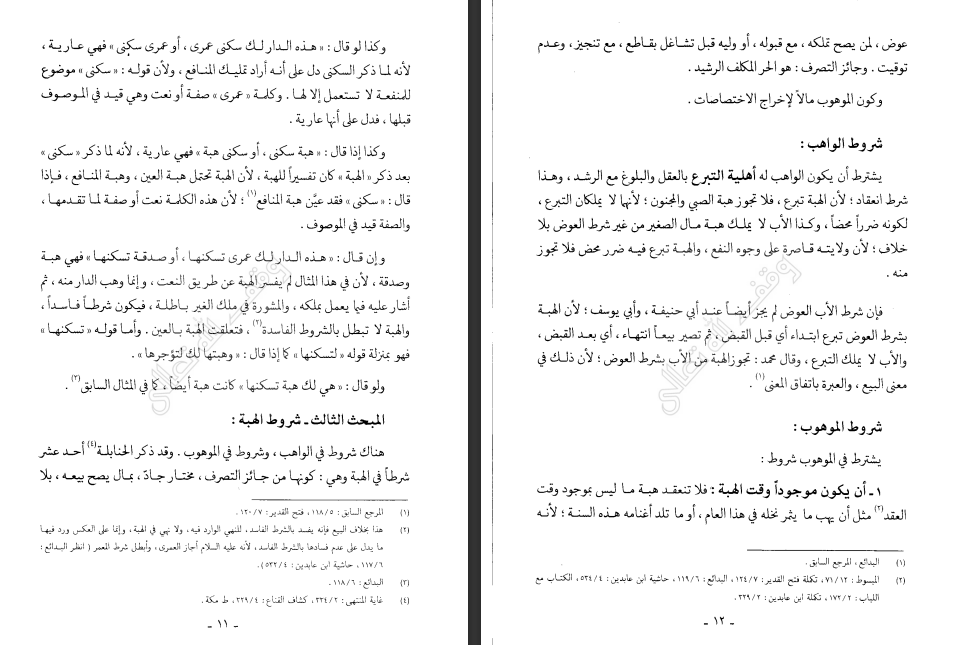 وكذا لو قال : « هذه الدار لك سكنى عمرى ، أو عمرى سكنى » فهي عارية ،
لأنه لما ذكر السكنى دل على أنه أراد تمليك المنافع ، ولأن قوله : « سكنى » موضوع
للمنفعة لا تستعمل إلا لها . وكلمة « عمرى » صفة أو نعت وهي قيد في الموصوف
قبلها ، فدل على أنها عارية .
وكذا إذا قال : « هبة سكنى ، أو سكنى هبة » فهي عارية ، لأنه لما ذكر « سكنى »
بعد ذكر « الهبة » كان تفسيراً للهبة ، لأن الهبة تحتمل هبة العين ، وهبة المنافع ، فإذا
قال : « سكنى » فقد عيَّن هبة المنافع(١) ؛ لأن هذه الكلمة نعت أو صفة لما تقدمها ،
والصفة قيد في الموصوف .
و إن قال : « هذه الدار لك عمرى تسكنها ، أو صدقة تسكنها » فهي هبة
وصدقة ، لأن في هذا المثال لم يفسر الهبة عن طريق النعت ، وإنما وهب الدار منه ، ثم
أشار عليه فيما يعمل بملكه ، والمشورة في ملك الغير باطلة ، فيكون شرطاً فاسداً ،
والهبة لا تبطل بالشروط الفاسدة(٢) ، فتعلقت الهبة بالعين . وأما قوله « تسكنها »
فهو بمنزلة قوله « لتسكنها » كما إذا قال : « وهبتها لك لتؤجرها » .
ولو قال : « هي لك هبة تسكنها » كانت هبة أيضاً ، كما في المثال السابق(٣) .
المبحث الثالث ـ شروط الهبة :
هناك شروط في الواهب ، وشروط في الموهوب . وقد ذكر الحنابلة(٤) أحد عشر
شرطاً في الهبة وهي : كونها من جائز التصرف ، مختار جادّ ، بمال يصح بيعه ، بلا
(١) المرجع السابق : ١١٨/٥ ، فتح القدير : ١٢٠/٧ .
(٢) هذا بخلاف البيع فإنه يفسد بالشرط الفاسد ، للنهي الوارد فيه ، ولا نهي في الهبة ، وإنما على العكس ورد فيها
ما يدل على عدم فسادها بالشرط الفاسد ، لأنه عليه السلام أجاز العمرى ، وأبطل شرط المعمر ( انظر البدائع :
١١٧/٦ ، حاشية ابن عابدين : ٥٣٢/٤ ) .
(٣) البدائع : ١١٨/٦ .
(٤) غاية المنتهى : ٣٣٤/٢ ، كشاف القناع : ٣٢٩/٤ ، ط مكة .
ـ ١١ ـ
عوض ، لمن يصح تملكه ، مع قبوله ، أو وليه قبل تشاغل بقاطع ، مع تنجيز ، وعدم
توقيت . وجائز التصرف : هو الحر المكلف الرشيد .
وكون الموهوب مالاً لإخراج الاختصاصات .
شروط الواهب :
يشترط أن يكون الواهب له أهلية التبرع بالعقل والبلوغ مع الرشد ، وهذا
شرط انعقاد ؛ لأن الهبة تبرع ، فلا تجوز هبة الصبي والمجنون ؛ لأنهما لا يملكان التبرع ،
لكونه ضرراً محضاً ، وكذا الأب لا يملك هبة مال الصغير من غير شرط العوض بلا
خلاف ؛ لأن ولايته قاصرة على وجوه النفع ، والهبة تبرع فيه ضرر محض فلا تجوز
منه .
فإن شرط الأب العوض لم يجز أيضاً عند أبي حنيفة ، وأبي يوسف ؛ لأن الهبة
بشرط العوض تبرع ابتداء أي قبل القبض ، ثم تصير بيعاً انتهاء ، أي بعد القبض ،
والأب لا يملك التبرع ، وقال محمد : تجوز الهبة من الأب بشرط العوض ؛ لأن ذلك في
معنى البيع ، والعبرة باتفاق المعنى(١) .
شروط الموهوب :
يشترط في الموهوب شروط :
١ ـ أن يكون موجوداً وقت الهبة : فلا تنعقد هبة ما ليس بموجود وقت
العقد(٢) مثل أن يهب ما يثمر نخله في هذا العام ، أو ما تلد أغنامه هذه السنة ؛ لأنه
(١) البدائع ، المرجع السابق .
(٢) المبسوط : ٧١/١٢ ، تكملة فتح القدير : ١٢٤/٧ ، البدائع : ١١٩/٦ ، حاشية ابن عابدين : ٥٣٤/٤ ، الكتاب مع
اللباب : ١٧٢/٢ ، تكملة ابن عابدين : ٣٢٩/٢ .
ـ ١٢ ـ